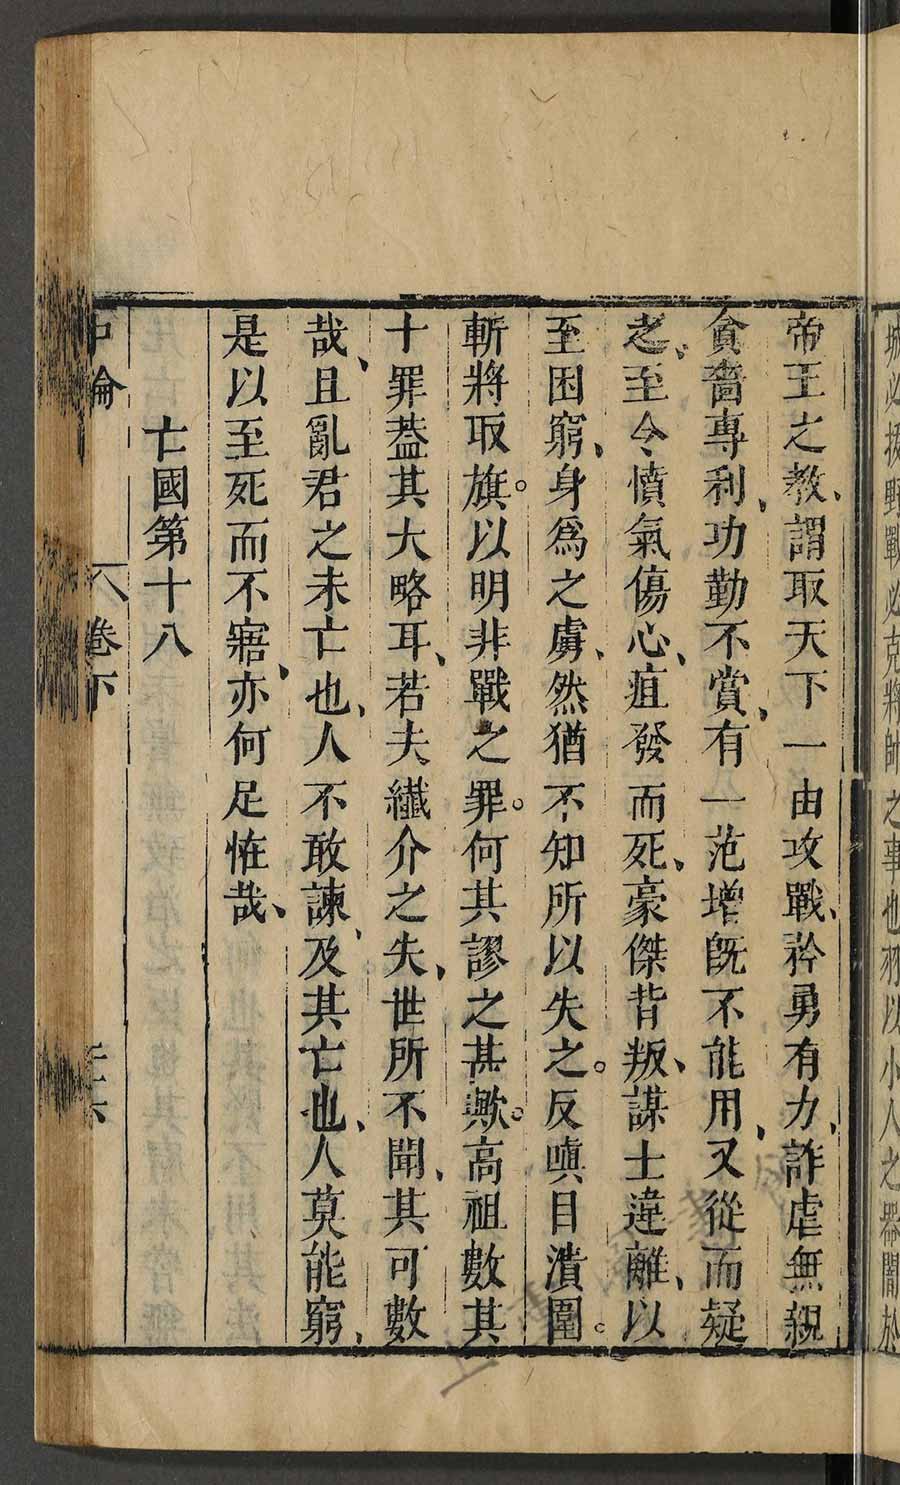 城必拔野戰必克將帥之事也羽以小人之器闇於
帝王之教、謂取天下一由攻戰、矜勇有力、詐虐無親
貪嗇專利、功勤不賞、有一范增旣不能用、又從而疑
之、至令憤氣傷心、疽發而死、豪傑背叛、謀士違離、以
至困窮、身爲之虜、然猶不知所以失之。反嗔目潰圍。
斬將取旗。以明非戰之罪。何其謬之甚歟。高祖數其
十罪葢其大略耳、若夫纎介之失、世所不聞、其可數
哉、且亂君之未亡也、人不敢諫、及其亡也、人莫能窮、
是以至死而不寤、亦何足恠哉、
亡國第十八
中論 卷下 三十六